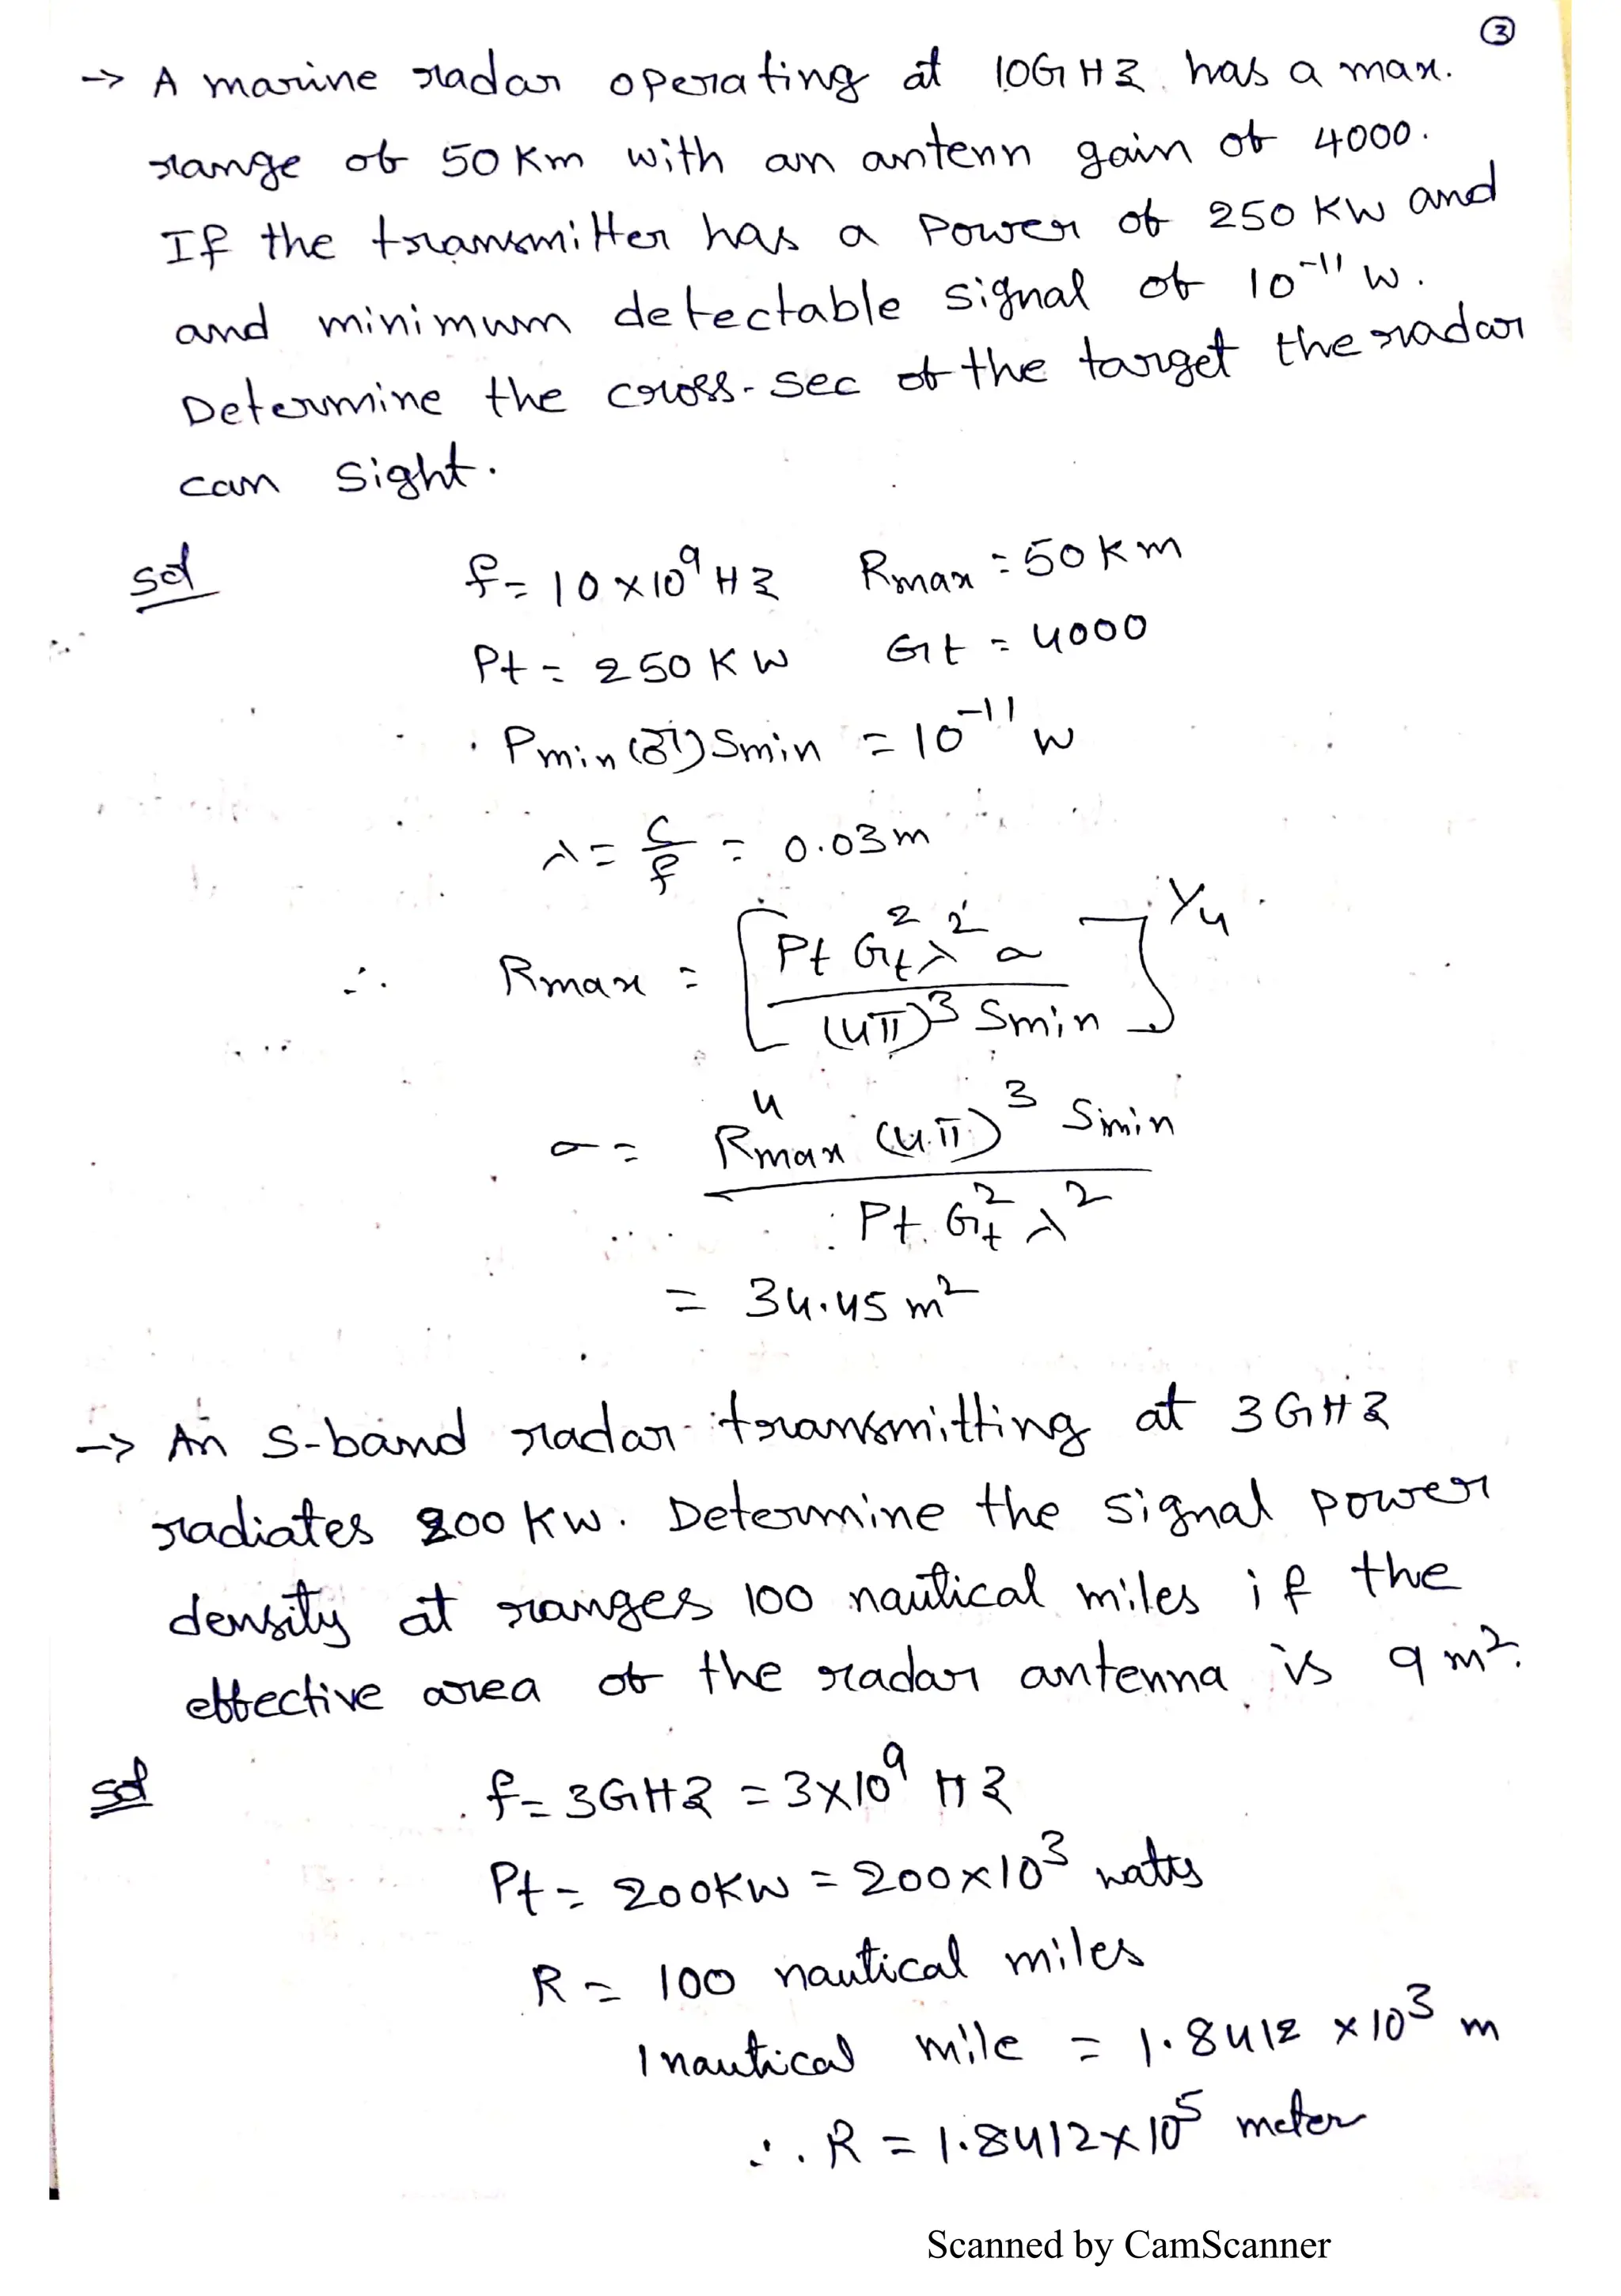 ③
→ A marine radar operating at 10GHz has a max.
range of 50Km with an antenn gain of 4000.
If the transmitter has a power of 250 KW and
and minimum detectable signal of 10⁻¹¹ W.
Determine the cross-sec of the target the radar
can sight.
sol
f = 10×10⁹ Hz Rmax = 50Km
Pt = 250 KW Gt = 4000
Pmin (or) Smin = 10⁻¹¹ W
λ = c/f = 0.03m
∴ Rmax = [Pt Gt² λ² σ / (4π)³ Smin]^1/4
σ = Rmax⁴ (4π)³ Smin / Pt. Gt² λ²
= 34.45 m²
→ An S-band radar transmitting at 3GHz
radiates 200 KW. Determine the signal power
density at ranges 100 nautical miles if the
effective area of the radar antenna is 9 m².
sol
f = 3GHz = 3×10⁹ Hz
Pt = 200KW = 200×10³ watts
R = 100 nautical miles
1 nautical mile = 1.8412 ×10³ m
∴ R = 1.8412×10⁵ meter
Scanned by CamScanner